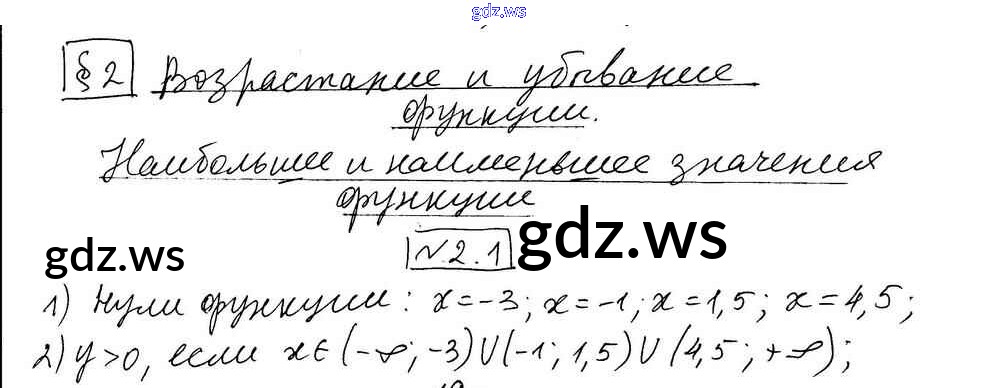 gdz.ws
§ 2 Возрастание и убывание
функции.
Наибольшее и наименьшее значения
функции
gdz.ws
№ 2.1
gdz.ws
1) Нули функции: x=-3; x=-1; x=1,5; x=4,5;
2) y>0, если x∈(-∞; -3)∪(-1; 1,5)∪(4,5; +∞);